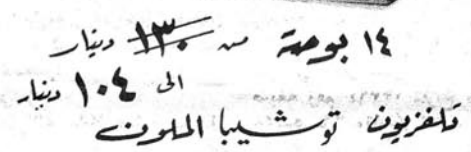 ١٤ بوصة من ١٣٠ دينار
الى ١٠٤ دينار
تلفزيون توشيبا الملون